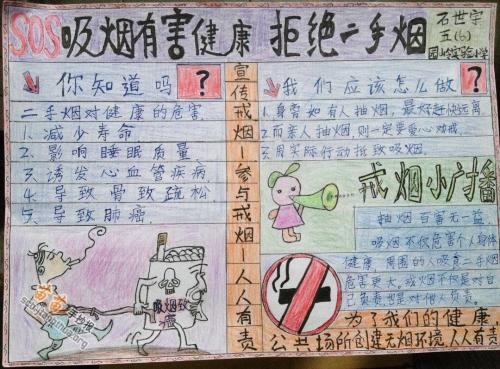 SOS吸烟有害健康 拒绝二手烟
石世宇
五(6)
实验小学
你知道吗?
二手烟对健康的危害.
1、减少寿命
2、影响睡眠质量
3、诱发心血管疾病
4、导致骨致疏松
5、导致肺癌
吸烟致癌
宣传戒烟-参与戒烟-人人有责
我们应该怎么做?
1.身旁如有人抽烟,最好赶快远离
2.而亲人抽烟,则一定要爱心劝戒.
3.用实际行动抵致吸烟.
戒烟小广播
抽烟百害无一益
吸烟不仅危害个人身体
健康,周围的人吸食二手烟
危害更大。戒烟不仅是对自
己负责想是对他人负责。
为了我们的健康,
公共场所创建无烟环境 人人有责